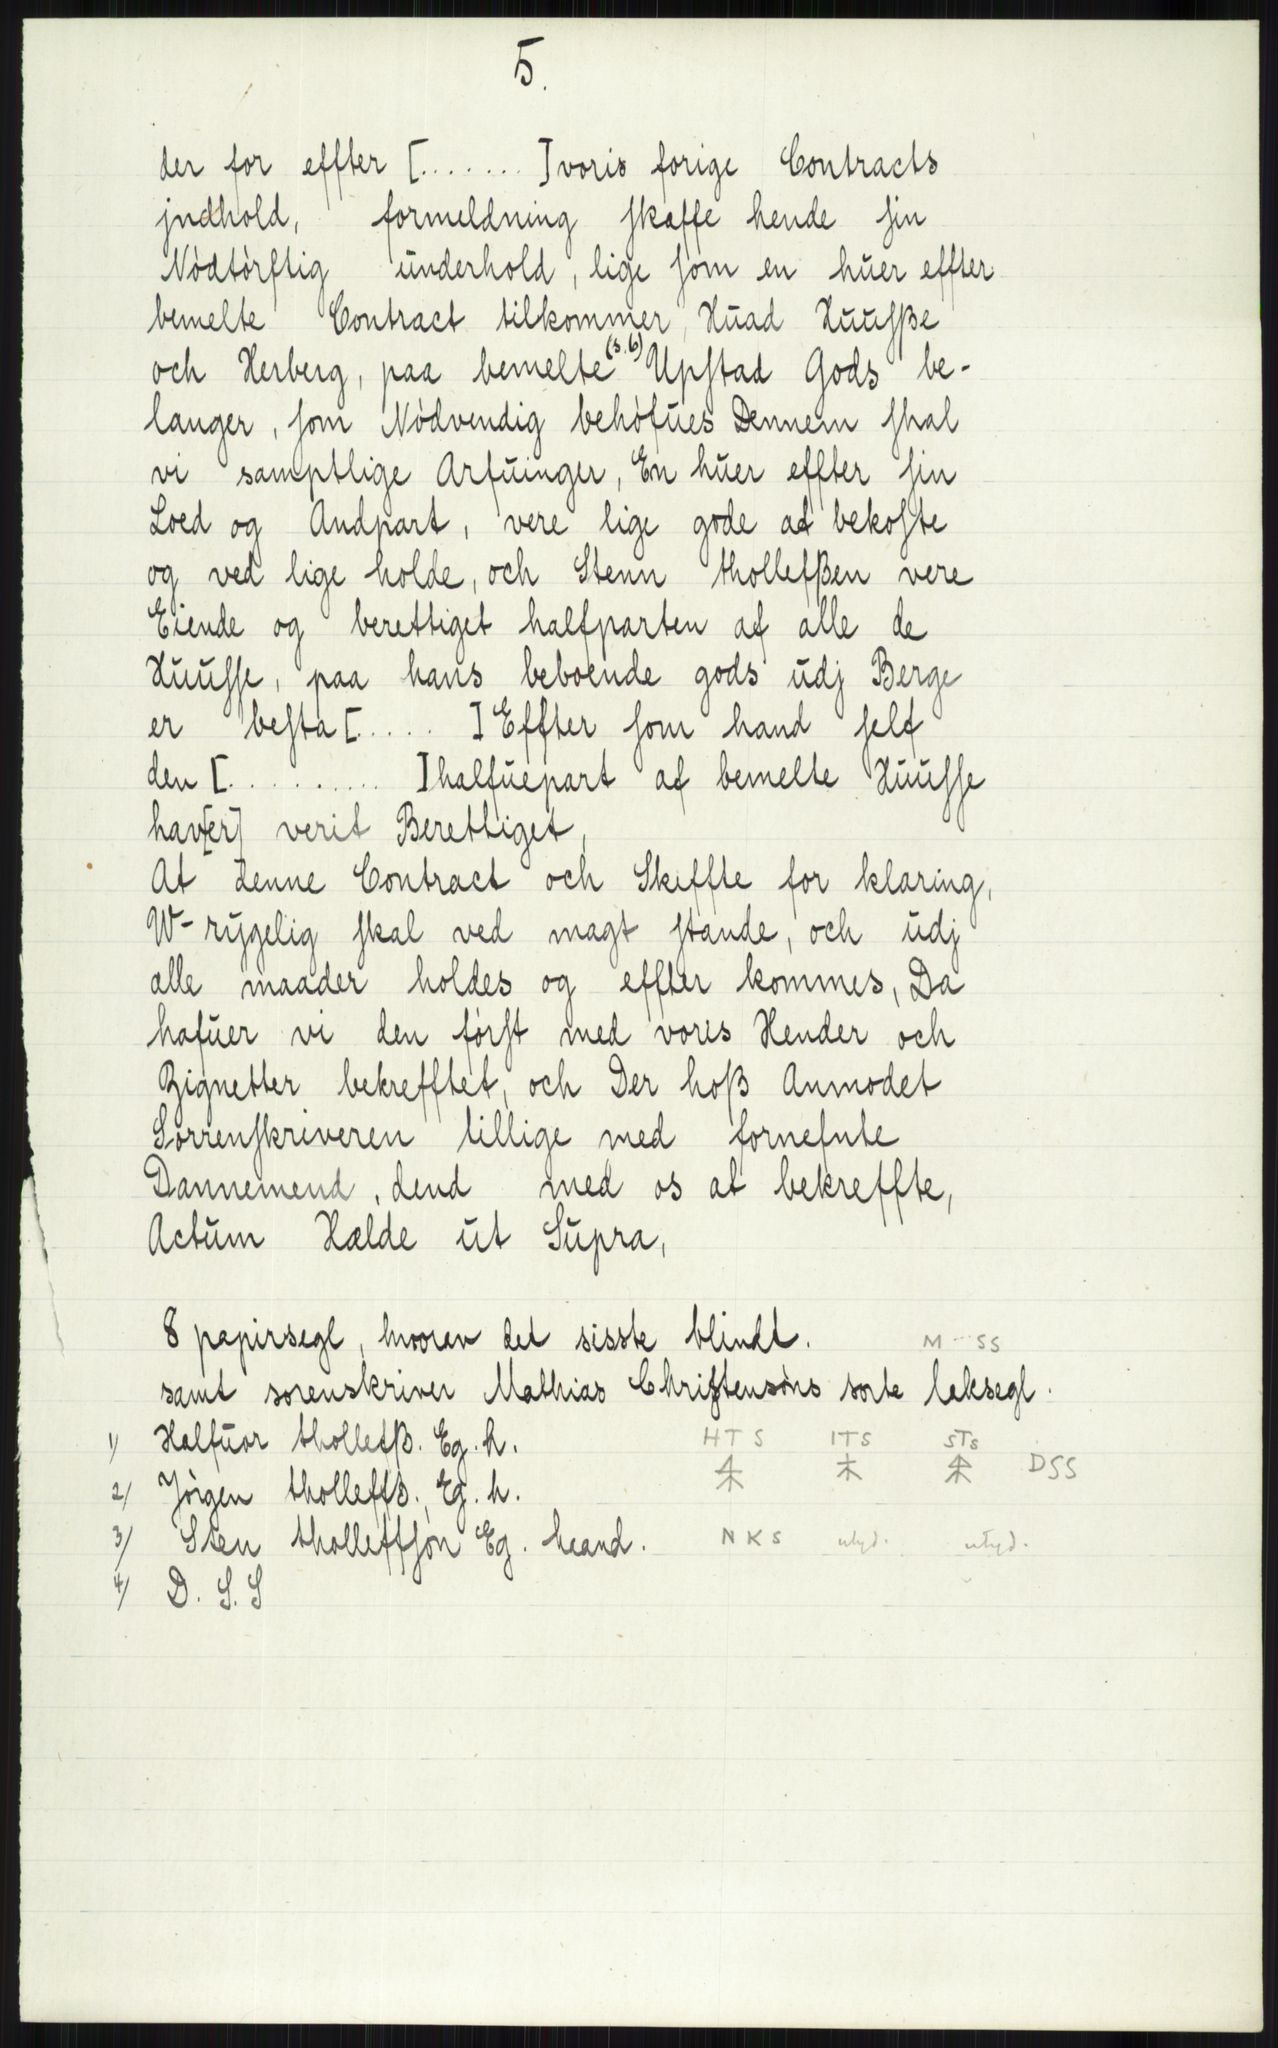 5.
der for effter [.......] voris forige Contracts
jndhold, formeldning skaffe hende sin
Nödtörftig ünderhold, lige som en hüer effter
bemelte Contract tilkommer, Hüad Huusße
och Herberg, paa bemelte (s.6) Upstad Gods be-
langer, som Nödvendig behöfües Dennem skal
vi samptlige Arfüinger, En hüer effter sin
Loed og Andpart, vere lige gode at bekoste
og ved lige holde, och Stenn thollefßen vere
Eiende og berettiget halfparten af alle de
Huusse, paa hans beboende gods üdj Berge
er besta[..... ] Effter som hand self
den [.......... ] halfüepart af bemelte Huusse
hav[er] verit Berettiget,
At denne Contract och Skiffte for klaring,
W-rygelig skal ved magt stande, och üdj
alle maader holdes og effter kommes, Da
hafüer vi den först med voris Hender och
Zignetter bekrefftet, och Der hoß Anmodet
Sorrenskriveren tillige med fornefnte
Dannemend, dend med os at bekreffte,
Actüm Hælde üt Süpra,
8 papirsegl, hvorav det sisste blindt. M...SS
samt sorenskriver Mathias Christensöns sorte laksegl.
1) Halfüor tholleß. Eg. h. HTS ITS STS
2) Jörgen tholleffß. Eg. h. DSS
3) Sten tholleffsön Eg. haand. NKS utyd. utyd.
4) D. S. S